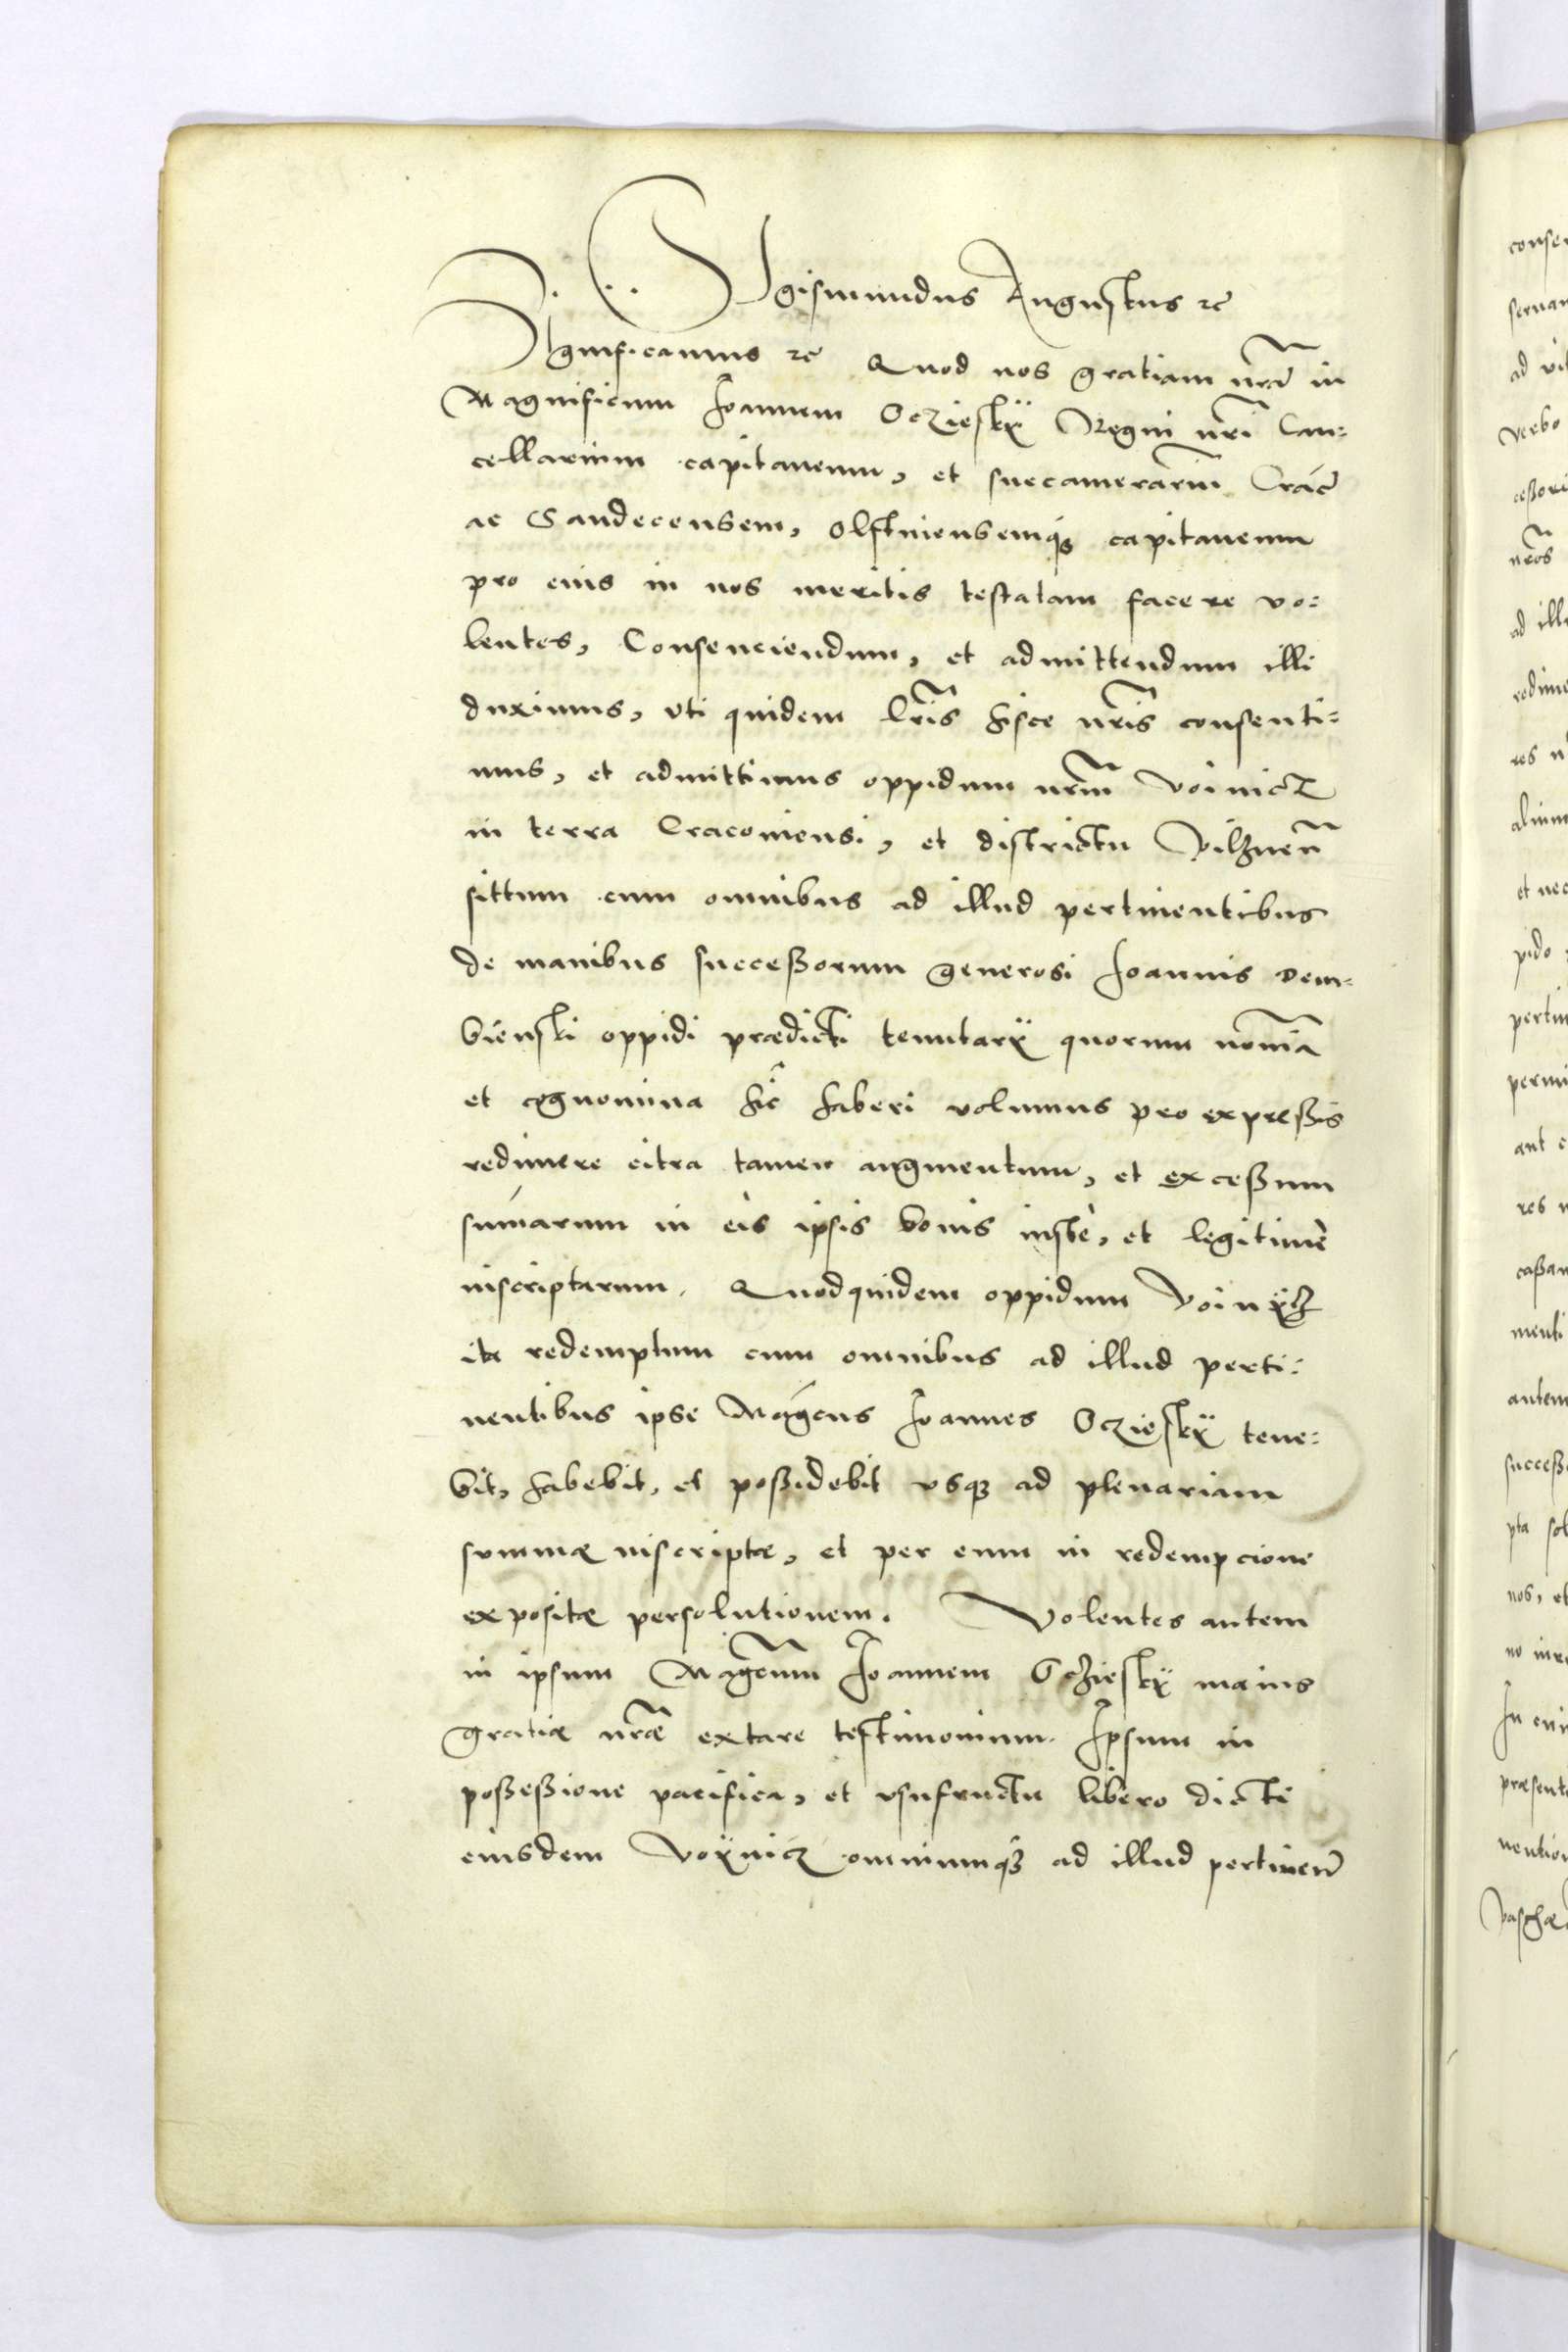 Sigismundus Augustus etc
Significamus etc Quod nos gratiam nr̃am in
Magnificum Joannem Oczieskÿ Regni nr̃i Can:
cellarium capitaneum, et succamerariũ Crac̃
ac Sandecensem, Olstinensemq; capitaneum
pro eius in nos meritis testatam facere vo:
lentes, Consenciendum, et admittendum illi
duximus, vti quidem lr̃is hisce nr̃is consenti:
mus, et admittimus oppidum nr̃um Voinicz
in terra Cracouiensi, et districtu Pilznen̄
sittum cum omnibus ad illud pertinentibus
de manibus successorum generosi Joannis Dem:
bienski oppidi prædicti tenutarÿ quorum noĩa
et cognomina hic̃ haberi volumus pro expressis
redimere citra tamen augmentum, et excessum
sum̃arum in eis ipsis bonis iustè, et legitimè
inscriptarum. Quodquidem oppidum Voinÿcz
ita redemptum cum omnibus ad illud perti:
nentibus ipse Mag̃cus Joannes Oczieskÿ tene:
bit, habebit, et possidebit vsq; ad plenariam
summæ inscriptæ, et per eum in redempcione
expositæ persolutionem. Volentes autem
in ipsum Mag̃cum Joannem Oczieskÿ maius
gratiæ nr̃æ extare testimonium. Ipsum in
possessione pacifica, et vsufructu libero dicti
eiusdem Voÿnicz omniumq; ad illud pertinen̄